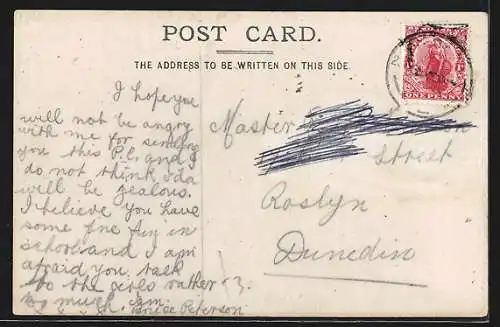 POST CARD.
THE ADDRESS TO BE WRITTEN ON THIS SIDE.
ONE PENNY
I hope you
will not be angry
with me for sending
you this P.C. and I
do not think Ida
will be jealous.
I believe you have
some fine fun in
school and I am
afraid you talk
to the girls rather
much
Peterson
Master
Street
Roslyn
Dunedin